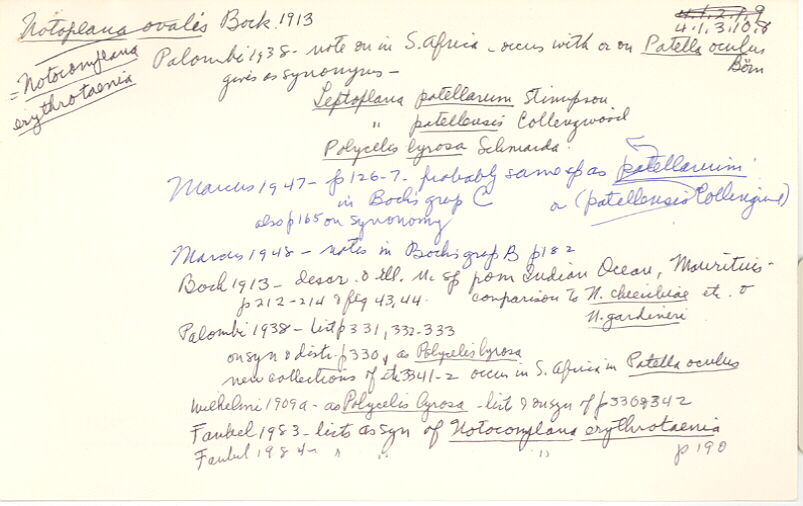 Notoplana ovalis Bock 1913
4.1.2.9.9
4.1.3.10.8
= Notocomplana erythrotaenia
Palombi 1938 - note on in S. Africa - occurs with or on Patella oculus Börn
gives as synonyms -
Leptoplana patellarum Stimpson
" patellensis Collingwood
Polycelis lyrosa Schmarda.
Marcus 1947 - p126-7. probably same sp as patellarum
in Bock's group C or (patellensis Collingwood)
also p165 on synonomy
Marcus 1948 - notes in Bock's group B p182
Bock 1913 - descr. & ill. n. sp from Indian Ocean, Mauritius -
p212-214 & fig 43,44. comparison to N. etc. &
N. gardineri
Palombi 1938 - list p331, 332-333
on syn & distr. p330, as Polycelis lyrosa
new collections of etc 3341-2 occur in S. Africa in Patella oculus
Wilhelmi 1909a - as Polycelis lyrosa - list & on syn of p330 & 342
Faubel 1983 - lists as syn of Notocomplana erythrotaenia
Faubel 1984 - " " " p190